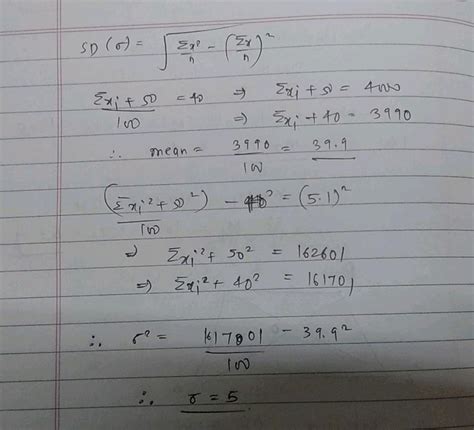 SD (σ) = √ Σx²/n - (Σx/n)²
Σxi + 50 / 100 = 40 ⇒ Σxi + 50 = 4000
⇒ Σxi + 40 = 3990
∴ mean = 3990 / 100 = 39.9
(Σxi² + 50²) / 100 - 40² = (5.1)²
⇒ Σxi² + 50² = 162601
⇒ Σxi² + 40² = 161701
∴ σ² = 161701 / 100 - 39.9²
∴ σ = 5